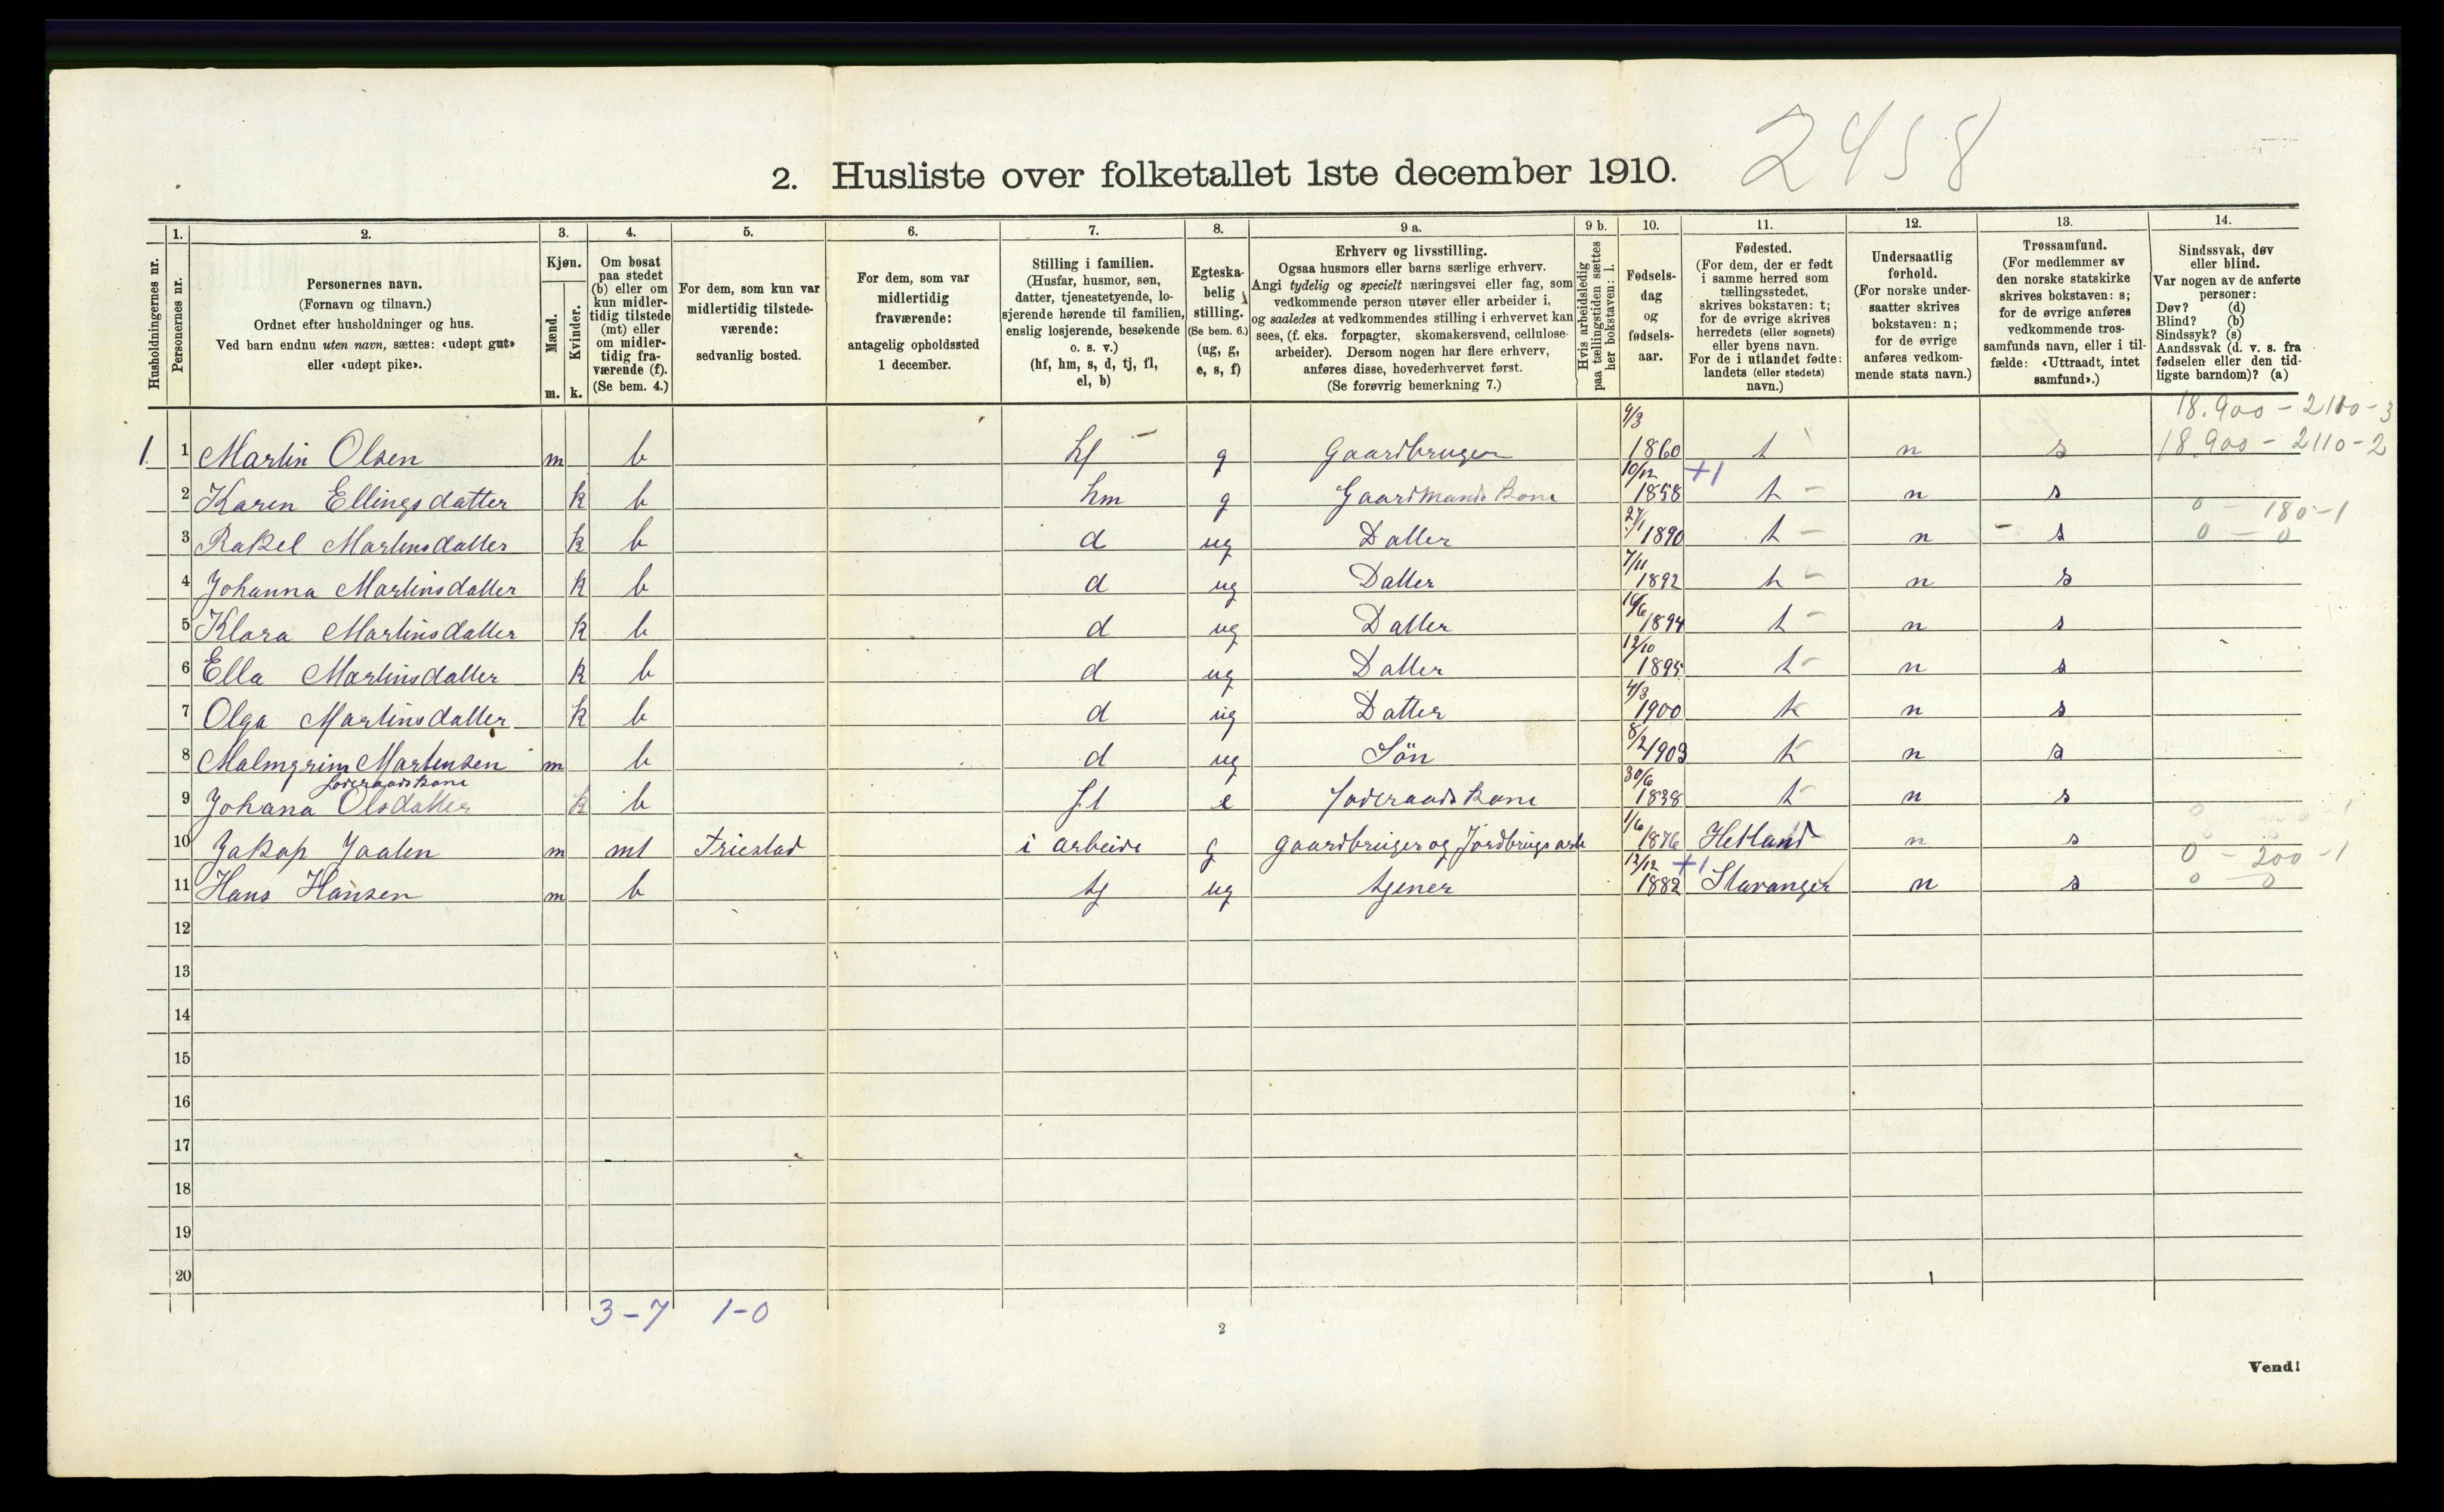 2458
2. Husliste over folketallet 1ste december 1910.
Husholdningernes nr.
1.
Personernes nr.
2.
Personernes navn.
(Fornavn og tilnavn.)
Ordnet efter husholdninger og hus.
Ved barn endnu uten navn, sættes: «udøpt gut»
eller «udøpt pike».
3.
Kjøn.
Mænd.
Kvinder.
m. k.
4.
Om bosat
paa stedet
(b) eller om
kun midler-
tidig tilstede
(mt) eller
om midler-
tidig fra-
værende (f).
(Se bem. 4.)
5.
For dem, som kun var
midlertidig tilstede-
værende:
sedvanlig bosted.
6.
For dem, som var
midlertidig
fraværende:
antagelig opholdssted
1 december.
7.
Stilling i familien.
(Husfar, husmor, søn,
datter, tjenestetyende, lo-
sjerende hørende til familien,
enslig losjerende, besøkende
o. s. v.)
(hf, hm, s, d, tj, fl,
el, b)
8.
Egteska-
belig
stilling.
(Se bem. 6.)
(ug, g,
e, s, f)
9 a.
Erhverv og livsstilling.
Ogsaa husmors eller barns særlige erhverv.
Angi tydelig og specielt næringsvei eller fag, som
vedkommende person utøver eller arbeider i,
og saaledes at vedkommendes stilling i erhvervet kan
sees, (f. eks. forpagter, skomakersvend, cellulose-
arbeider). Dersom nogen har flere erhverv,
anføres disse, hovederhvervet først.
(Se forøvrig bemerkning 7.)
9 b.
Hvis arbeidsledig
paa tællingstiden sættes
her bokstaven: l.
10.
Fødsels-
dag
og
fødsels-
aar.
11.
Fødested.
(For dem, der er født
i samme herred som
tællingsstedet,
skrives bokstaven: t;
for de øvrige skrives
herredets (eller sognets)
eller byens navn.
For de i utlandet fødte:
landets (eller stedets)
navn.)
12.
Undersaatlig
forhold.
(For norske under-
saatter skrives
bokstaven: n;
for de øvrige
anføres vedkom-
mende stats navn.)
13.
Trossamfund.
(For medlemmer av
den norske statskirke
skrives bokstaven: s;
for de øvrige anføres
vedkommende tros-
samfunds navn, eller i til-
fælde: «Uttraadt, intet
samfund».)
14.
Sindssvak, døv
eller blind.
Var nogen av de anførte
personer:
Døv? (d)
Blind? (b)
Sindssyk? (s)
Aandssvak (d. v. s. fra
fødselen eller den tid-
ligste barndom)? (a)
18.900 - 2110 - 3
1. 1 Martin Olsen m b hf g Gaardbruger 9/3 1860 t n s 18.900 - 2110 - 2
2 Karen Ellingsdatter k b hm g Gaardmands kone 10/12 1858 +1 t n s
0 - 180 - 1
3 Rakel Martinsdatter k b d ug Datter 27/1 1890 t n s 0 - 0
4 Johanna Martinsdatter k b d ug Datter 7/11 1892 t n s
5 Klara Martinsdatter k b d ug Datter 16/6 1894 t n s
6 Ella Martinsdatter k b d ug Datter 12/10 1895 t n s
7 Olga Martinsdatter k b d ug Datter 4/3 1900 t n s
8 Malmgrim Martinsen m b d ug Sön 8/2 1903 t n s
Foderaadskone
9 Johana Olsdatter k b fl e Foderaads kone 30/6 1838 t n s
10 Jakop Jaalen m mt Friestad i arbeide g gaardbruger og Jordbrugs arb 1/6 1876 Hetland n s
0 - 200 - 1
11 Hans Hansen m b tj ug tjener 12/12 1882 +1 Stavanger n s 0 - 0
12
13
14
15
16
17
18
19
20
3 - 7 1 - 0
2
Vend!